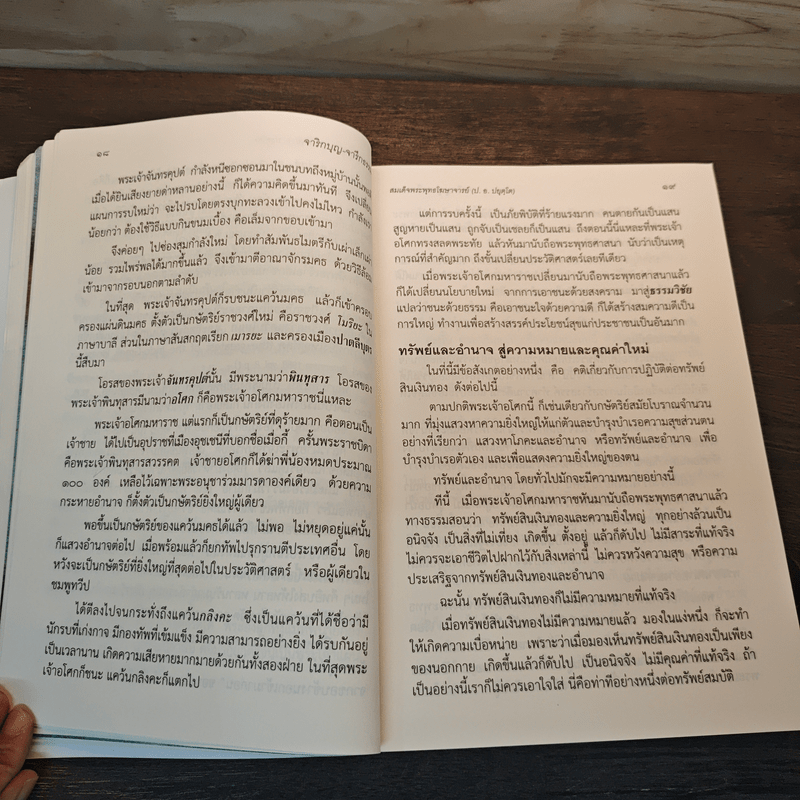 ๑๘
จาริกบุญ-จารึกธรรม
พระเจ้าจันทรคุปต์ กำลังหนีซอกซอนมาในชนบทถึงหมู่บ้านนั้นพอดี
เมื่อได้ยินเสียงยายด่าหลานอย่างนี้ ก็ได้ความคิดขึ้นมาทันที จึงเปลี่ยน
แผนการรบใหม่ว่า จะไปรบโดยตรงบุกทะลวงเข้าไปคงไม่ไหว กำลังเรา
น้อยกว่า ต้องใช้วิธีแบบกินขนมเบื้อง คือเล็มจากขอบเข้ามา
จึงค่อยๆ ไปซ่องสุมกำลังใหม่ โดยทำสัมพันธไมตรีกับเผ่าเล็กเผ่า
น้อย รวมไพร่พลได้มากขึ้นแล้ว จึงเข้ามาตีอาณาจักรมคธ ด้วยวิธีล้อม
เข้ามาจากรอบนอกตามลำดับ
ในที่สุด พระเจ้าจันทรคุปต์ก็รบชนะแคว้นมคธ แล้วก็เข้าครอบ
ครองแผ่นดินมคธ ตั้งตัวเป็นกษัตริย์ราชวงศ์ใหม่ คือราชวงศ์ โมริยะ ใน
ภาษาบาลี ส่วนในภาษาสันสกฤตเรียก เมารยะ และครองเมืองปาตลีบุตร
นี้สืบมา
โอรสของพระเจ้าจันทรคุปต์นั้น มีพระนามว่าพินทุสาร โอรสของ
พระเจ้าพินทุสารมีนามว่าอโศก ก็คือพระเจ้าอโศกมหาราชนี่แหละ
พระเจ้าอโศกมหาราช แต่แรกก็เป็นกษัตริย์ที่ดุร้ายมาก คือตอนเป็น
เจ้าชาย ได้ไปเป็นอุปราชที่เมืองอุชเชนีที่บอกชื่อเมื่อกี้ ครั้นพระราชบิดา
คือพระเจ้าพินทุสารสวรรคต เจ้าชายอโศกก็ได้ฆ่าพี่น้องหมดประมาณ
๑๐๐ องค์ เหลือไว้เฉพาะพระอนุชาร่วมมารดาองค์เดียว ด้วยความ
กระหายอำนาจ ก็ตั้งตัวเป็นกษัตริย์ยิ่งใหญ่ผู้เดียว
พอขึ้นเป็นกษัตริย์ของแคว้นมคธได้แล้ว ไม่พอ ไม่หยุดอยู่แค่นั้น
ก็แสวงอำนาจต่อไป เมื่อพร้อมแล้วก็ยกทัพไปรุกรานตีประเทศอื่น โดย
หวังจะเป็นกษัตริย์ที่ยิ่งใหญ่ที่สุดต่อไปในประวัติศาสตร์ หรือผู้เดียวใน
ชมพูทวีป
ได้ตีลงไปจนกระทั่งถึงแคว้นกลิงคะ ซึ่งเป็นแคว้นที่ได้ชื่อว่ามี
นักรบที่เก่งกาจ มีกองทัพที่เข้มแข็ง มีความสามารถอย่างยิ่ง ได้รบกันอยู่
เป็นเวลานาน เกิดความเสียหายมากมายด้วยกันทั้งสองฝ่าย ในที่สุดพระ
เจ้าอโศกก็ชนะ แคว้นกลิงคะก็แตกไป
สมเด็จพระพุทธโฆษาจารย์ (ป. อ. ปยุตฺโต)
๑๙
แต่การรบครั้งนี้ เป็นภัยพิบัติที่ร้ายแรงมาก คนตายกันเป็นแสน
สูญหายเป็นแสน ถูกจับเป็นเชลยก็เป็นแสน ถึงตอนนี้นี่แหละที่พระเจ้า
อโศกทรงสลดพระทัย แล้วหันมานับถือพระพุทธศาสนา นับว่าเป็นเหตุ
การณ์ที่สำคัญมาก ถึงขั้นเปลี่ยนประวัติศาสตร์เลยทีเดียว
เมื่อพระเจ้าอโศกมหาราชเปลี่ยนมานับถือพระพุทธศาสนาแล้ว
ก็ได้เปลี่ยนนโยบายใหม่ จากการเอาชนะด้วยสงคราม มาสู่ธรรมวิชัย
แปลว่าชนะด้วยธรรม คือเอาชนะใจด้วยความดี ก็ได้สร้างสมความดีเป็น
การใหญ่ ทำงานเพื่อสร้างสรรค์ประโยชน์สุขแก่ประชาชนเป็นอันมาก
ทรัพย์และอำนาจ สู่ความหมายและคุณค่าใหม่
ในที่นี้มีข้อสังเกตอย่างหนึ่ง คือ คติเกี่ยวกับการปฏิบัติต่อทรัพย์
สินเงินทอง ดังต่อไปนี้
ตามปกติพระเจ้าอโศกนี้ ก็เช่นเดียวกับกษัตริย์สมัยโบราณจำนวน
มาก ที่มุ่งแสวงหาความยิ่งใหญ่ให้แก่ตัวและบำรุงบำเรอความสุขส่วนตน
อย่างที่เรียกว่า แสวงหาโภคะและอำนาจ หรือทรัพย์และอำนาจ เพื่อ
บำรุงบำเรอตัวเอง และเพื่อแสดงความยิ่งใหญ่ของตน
ทรัพย์และอำนาจ โดยทั่วไปมักจะมีความหมายอย่างนี้
ทีนี้ เมื่อพระเจ้าอโศกมหาราชหันมานับถือพระพุทธศาสนาแล้ว
ทางธรรมสอนว่า ทรัพย์สินเงินทองและความยิ่งใหญ่ ทุกอย่างล้วนเป็น
อนิจจัง เป็นสิ่งที่ไม่เที่ยง เกิดขึ้น ตั้งอยู่ แล้วก็ดับไป ไม่มีสาระที่แท้จริง
ไม่ควรจะเอาชีวิตไปฝากไว้กับสิ่งเหล่านี้ ไม่ควรหวังความสุข หรือความ
ประเสริฐจากทรัพย์สินเงินทองและอำนาจ
ฉะนั้น ทรัพย์สินเงินทองก็ไม่มีความหมายที่แท้จริง
เมื่อทรัพย์สินเงินทองไม่มีความหมายแล้ว มองในแง่หนึ่ง ก็จะทำ
ให้เกิดความเบื่อหน่าย เพราะว่าเมื่อมองเห็นทรัพย์สินเงินทองเป็นเพียง
ของนอกกาย เกิดขึ้นแล้วก็ดับไป เป็นอนิจจัง ไม่มีคุณค่าที่แท้จริง ถ้า
เป็นอย่างนี้เราก็ไม่ควรเอาใจใส่ นี่คือท่าทีอย่างหนึ่งต่อทรัพย์สมบัติ